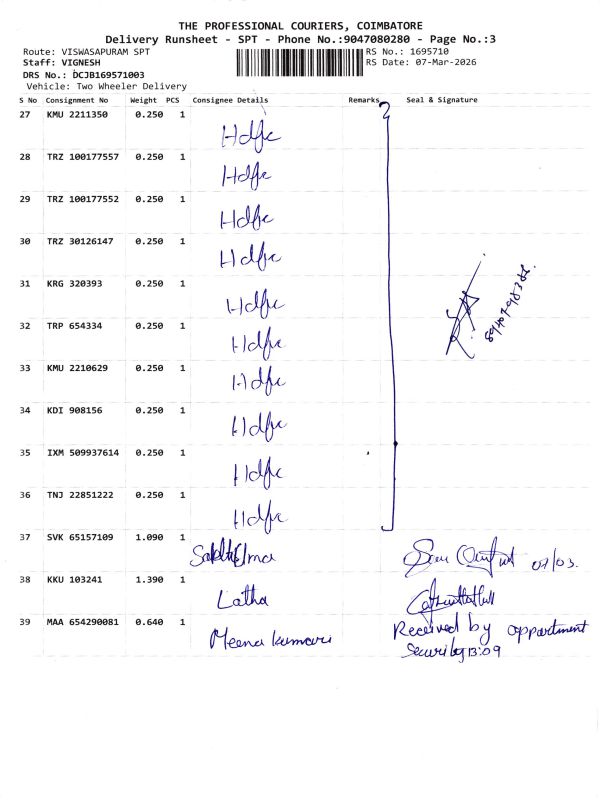 THE PROFESSIONAL COURIERS, COIMBATORE
Delivery Runsheet - SPT - Phone No.:9047080280 - Page No.:3
Route: VISWASAPURAM SPT RS No.: 1695710
Staff: VIGNESH RS Date: 07-Mar-2026
DRS No.: DCJB169571003
Vehicle: Two Wheeler Delivery
S No Consignment No Weight PCS Consignee Details Remarks Seal & Signature
27 KMU 2211350 0.250 1
Hdfc
28 TRZ 100177557 0.250 1
Hdfc
29 TRZ 100177552 0.250 1
Hdfc
30 TRZ 30126147 0.250 1
Hdfc
31 KRG 320393 0.250 1
Hdfc
32 TRP 654334 0.250 1
Hdfc
33 KMU 2210629 0.250 1
Hdfc
34 KDI 908156 0.250 1
Hdfc
35 IXM 509937614 0.250 1
Hdfc
36 TNJ 22851222 0.250 1
Hdfc
37 SVK 65157109 1.090 1
07/03.
38 KKU 103241 1.390 1
Latha
39 MAA 654290081 0.640 1
Meena kumari Received by appartment
Security 13:09